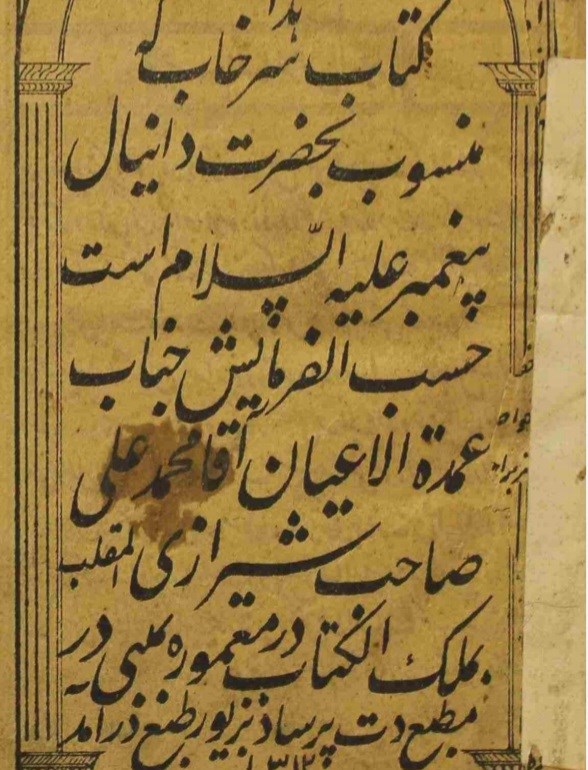 هذا
کتاب سرخاب که
منسوب بحضرت دانیال
پیغمبر علیه السّلام است
حسب الفرمایش جناب
عمدة الاعیان آقا محمد علی
صاحب شیرازی المقلب
بملک الکتاب در معموره بمبی در
مطبع دت پرساد بزیور طبع درآمد